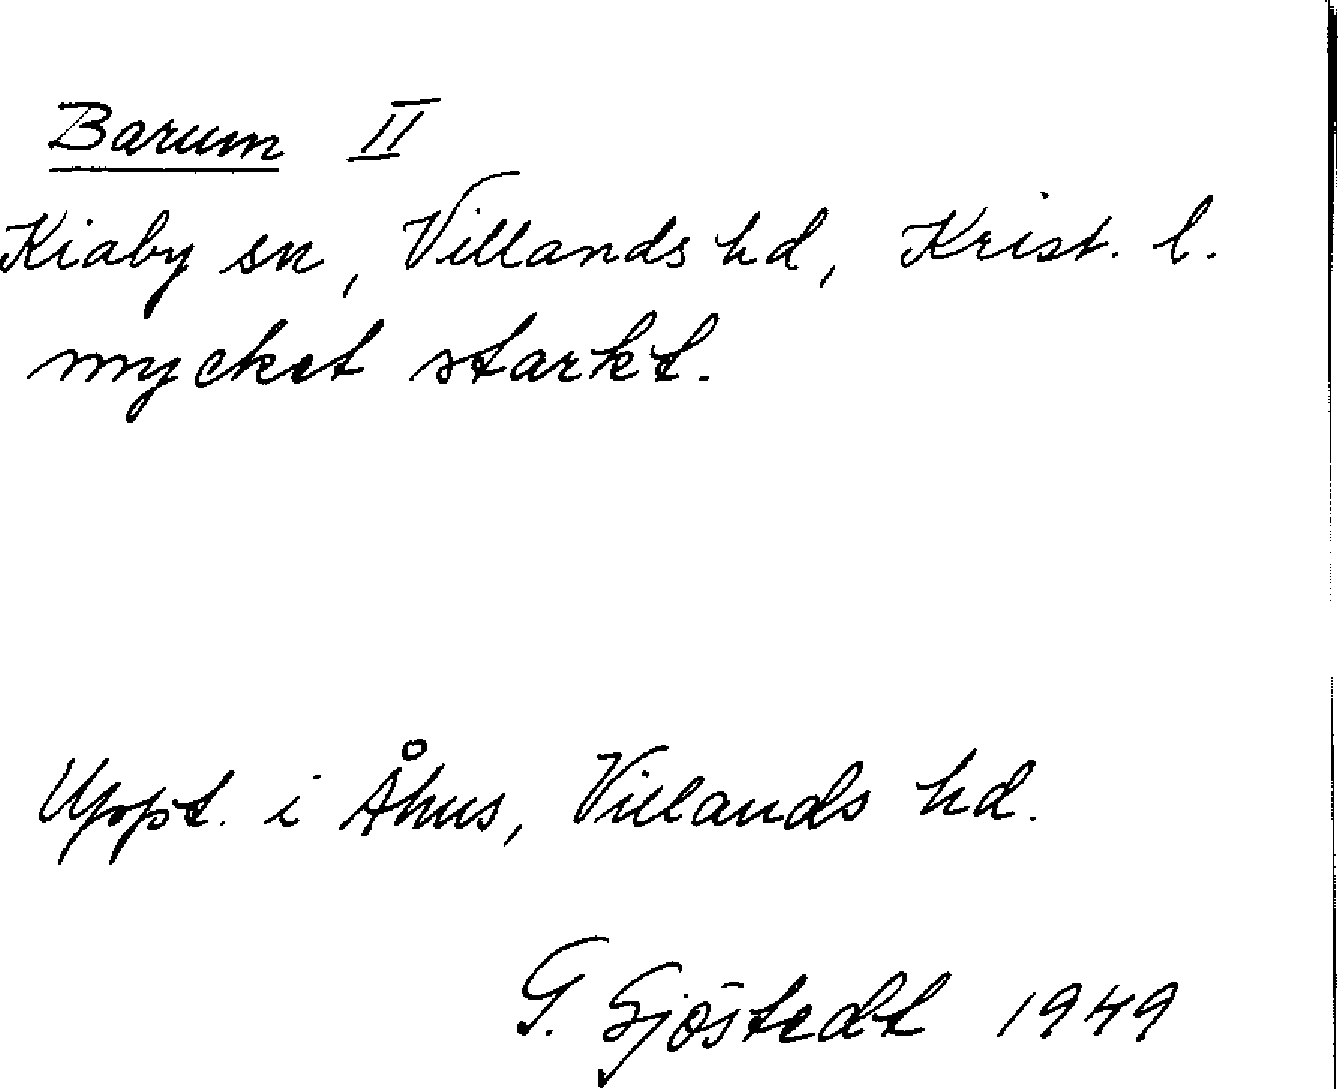 Barum II
Kiaby sn, Villands hd, Krist. l.
mycket starkt.
Uppt. i Åhus, Villands hd.
G. Sjöstedt 1949